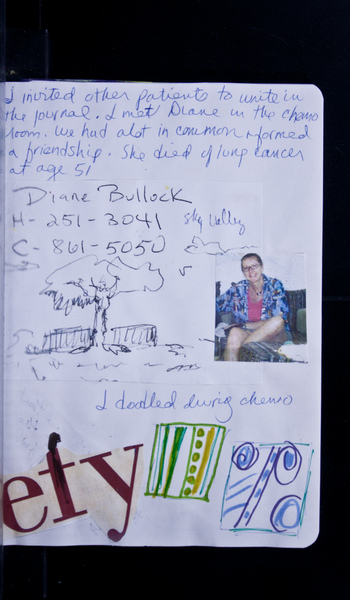 I invited other patients to write in
the journal. I met Diane in the chemo
room. We had alot in common & formed
a friendship. She died of lung cancer
at age 51
Diane Bullock
H- 251-3041 Sky Valley
C- 861-5050
I doodled during chemo
efy